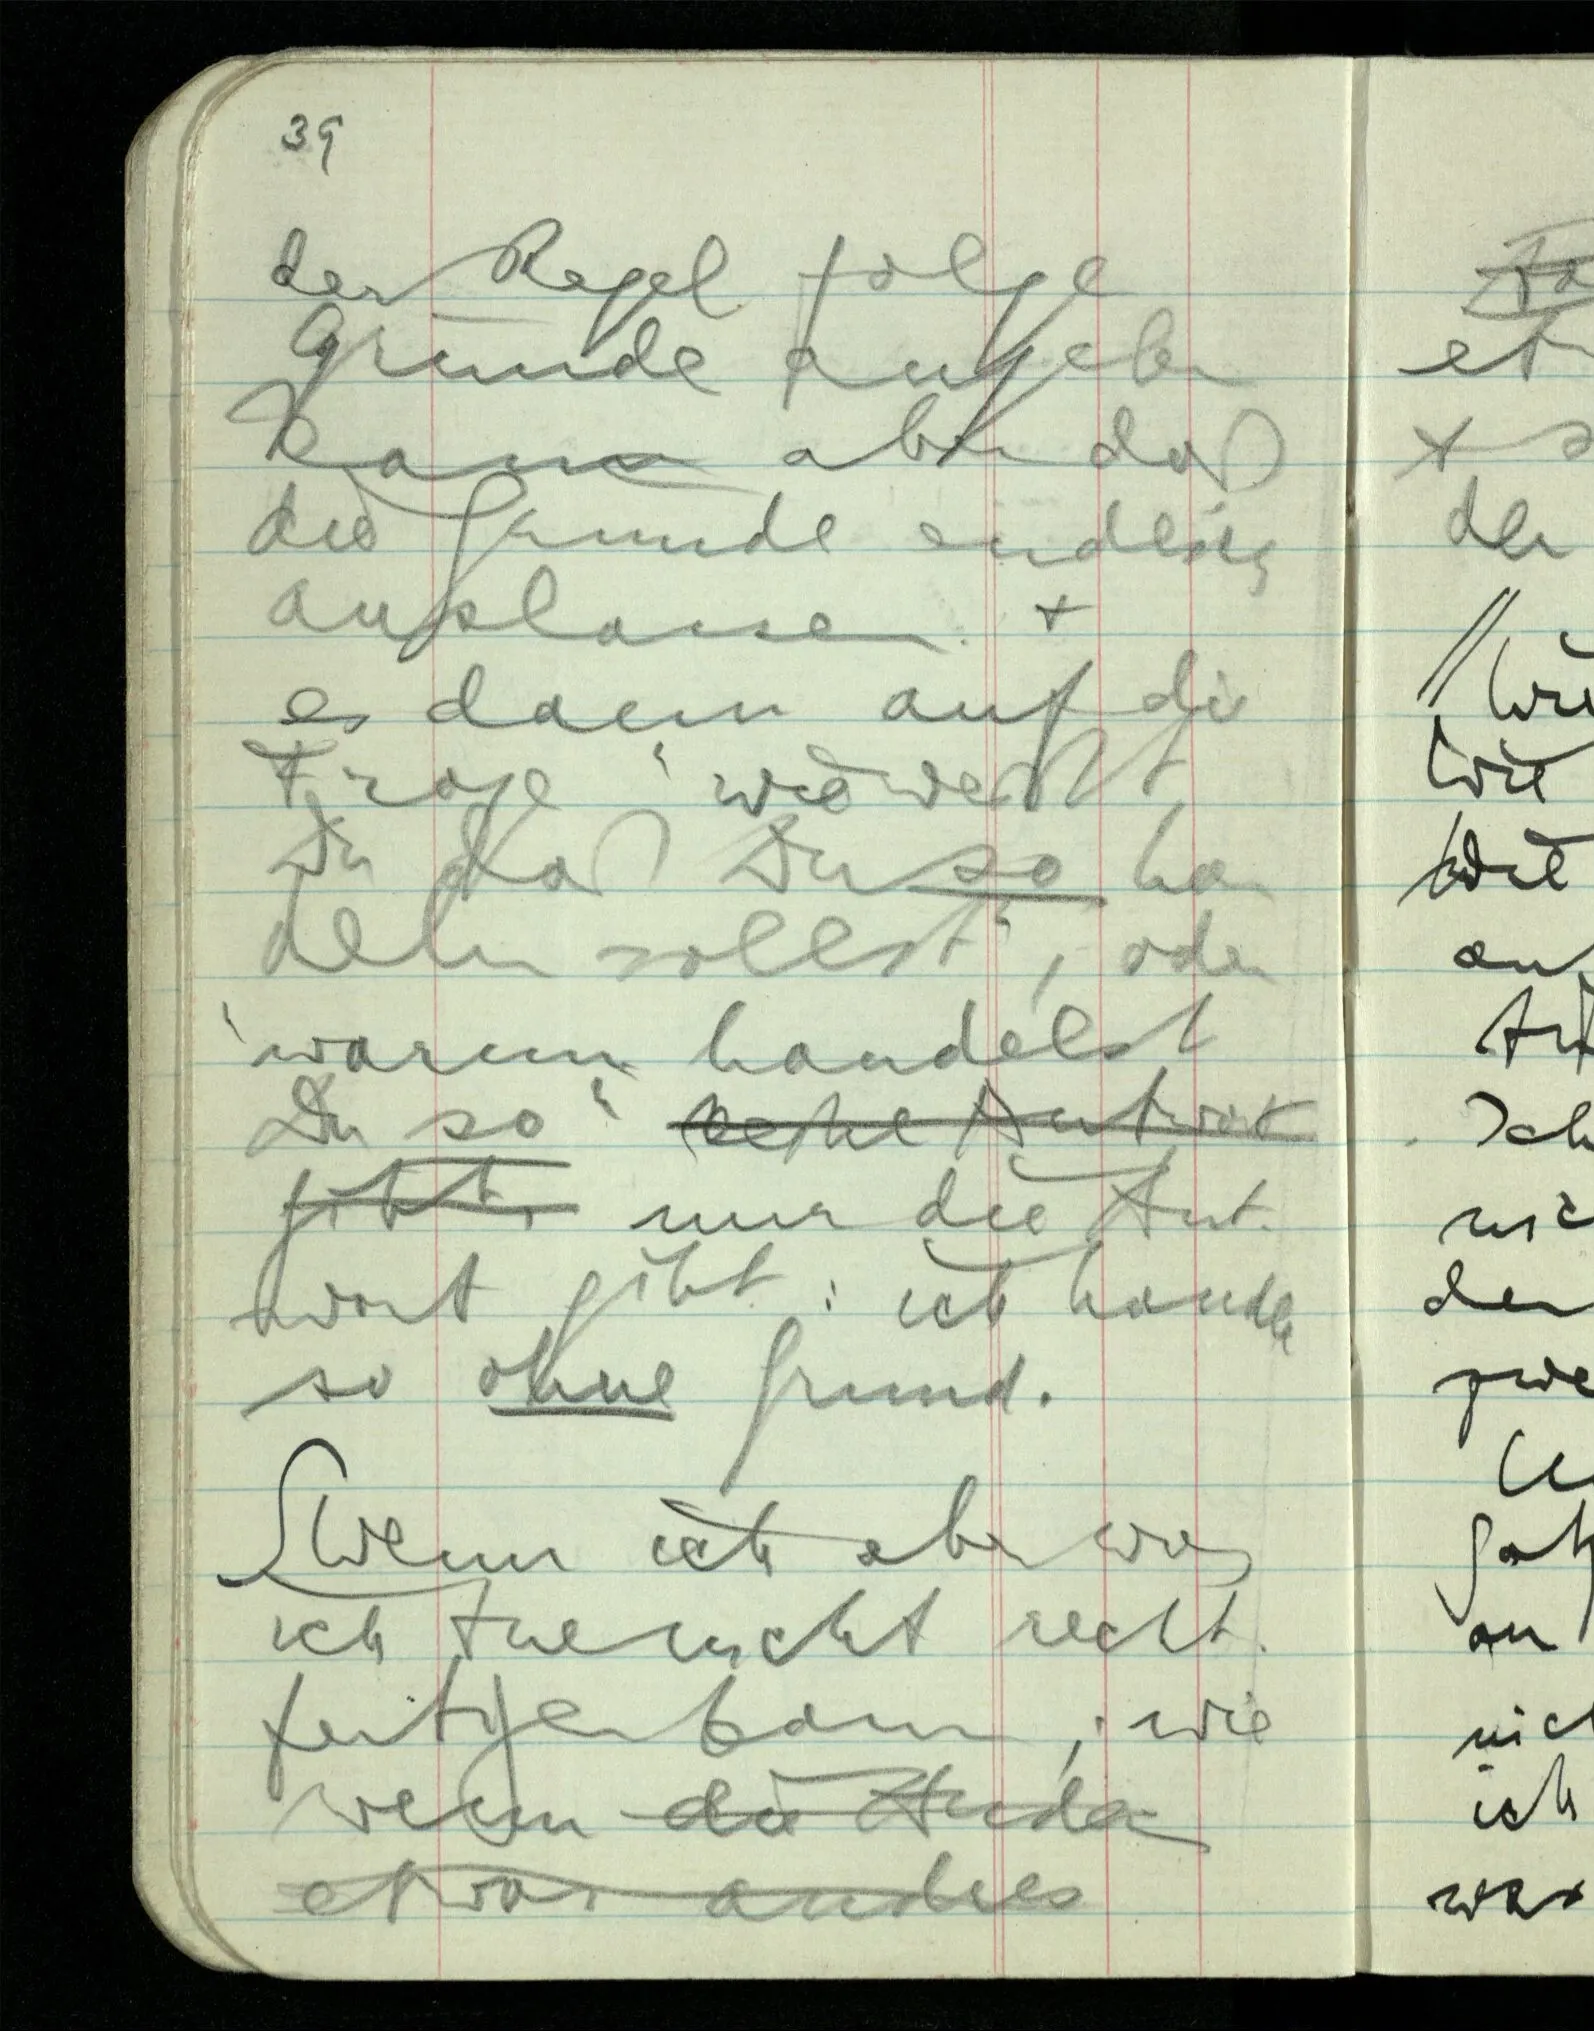 39
der Regel folge
Gründe angeben
kann aber daß
die Gründe endlich
auslassen. +
es dann auf die
Frage 'wie weißt
Du daß Du so han
deln sollst', oder
'warum handelst
Du so' keine Antwort
gibt, nur die Ant-
wort gibt: ich handle
so ohne Grund.
Wenn ich aber was
ich tue nicht recht-
fertigen kann, wie
wenn die Andern
etwas anderes
et
der
Wie
Wie
Ich
den
an
ich